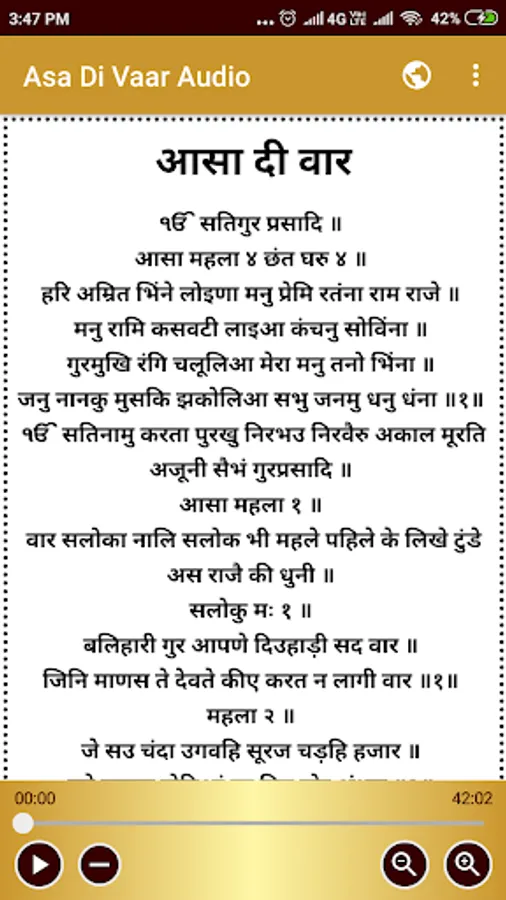 3:47 PM
4G VoLTE 42%
Asa Di Vaar Audio
आसा दी वार
ੴ सतिगुर प्रसादि ॥
आसा महला ४ छंत घरु ४ ॥
हरि अम्रित भिंने लोइणा मनु प्रेमि रतंना राम राजे ॥
मनु रामि कसवटी लाइआ कंचनु सोविंना ॥
गुरमुखि रंगि चलूलिआ मेरा मनु तनो भिंना ॥
जनु नानकु मुसकि झकोलिआ सभु जनमु धनु धंना ॥१॥
ੴ सतिनामु करता पुरखु निरभउ निरवैरु अकाल मूरति
अजूनी सैभं गुरप्रसादि ॥
आसा महला १ ॥
वार सलोका नालि सलोक भी महले पहिले के लिखे टुंडे
अस राजै की धुनी ॥
सलोकु मः १ ॥
बलिहारी गुर आपणे दिउहाड़ी सद वार ॥
जिनि माणस ते देवते कीए करत न लागी वार ॥१॥
महला २ ॥
जे सउ चंदा उगवहि सूरज चड़हि हजार ॥
00:00
42:02